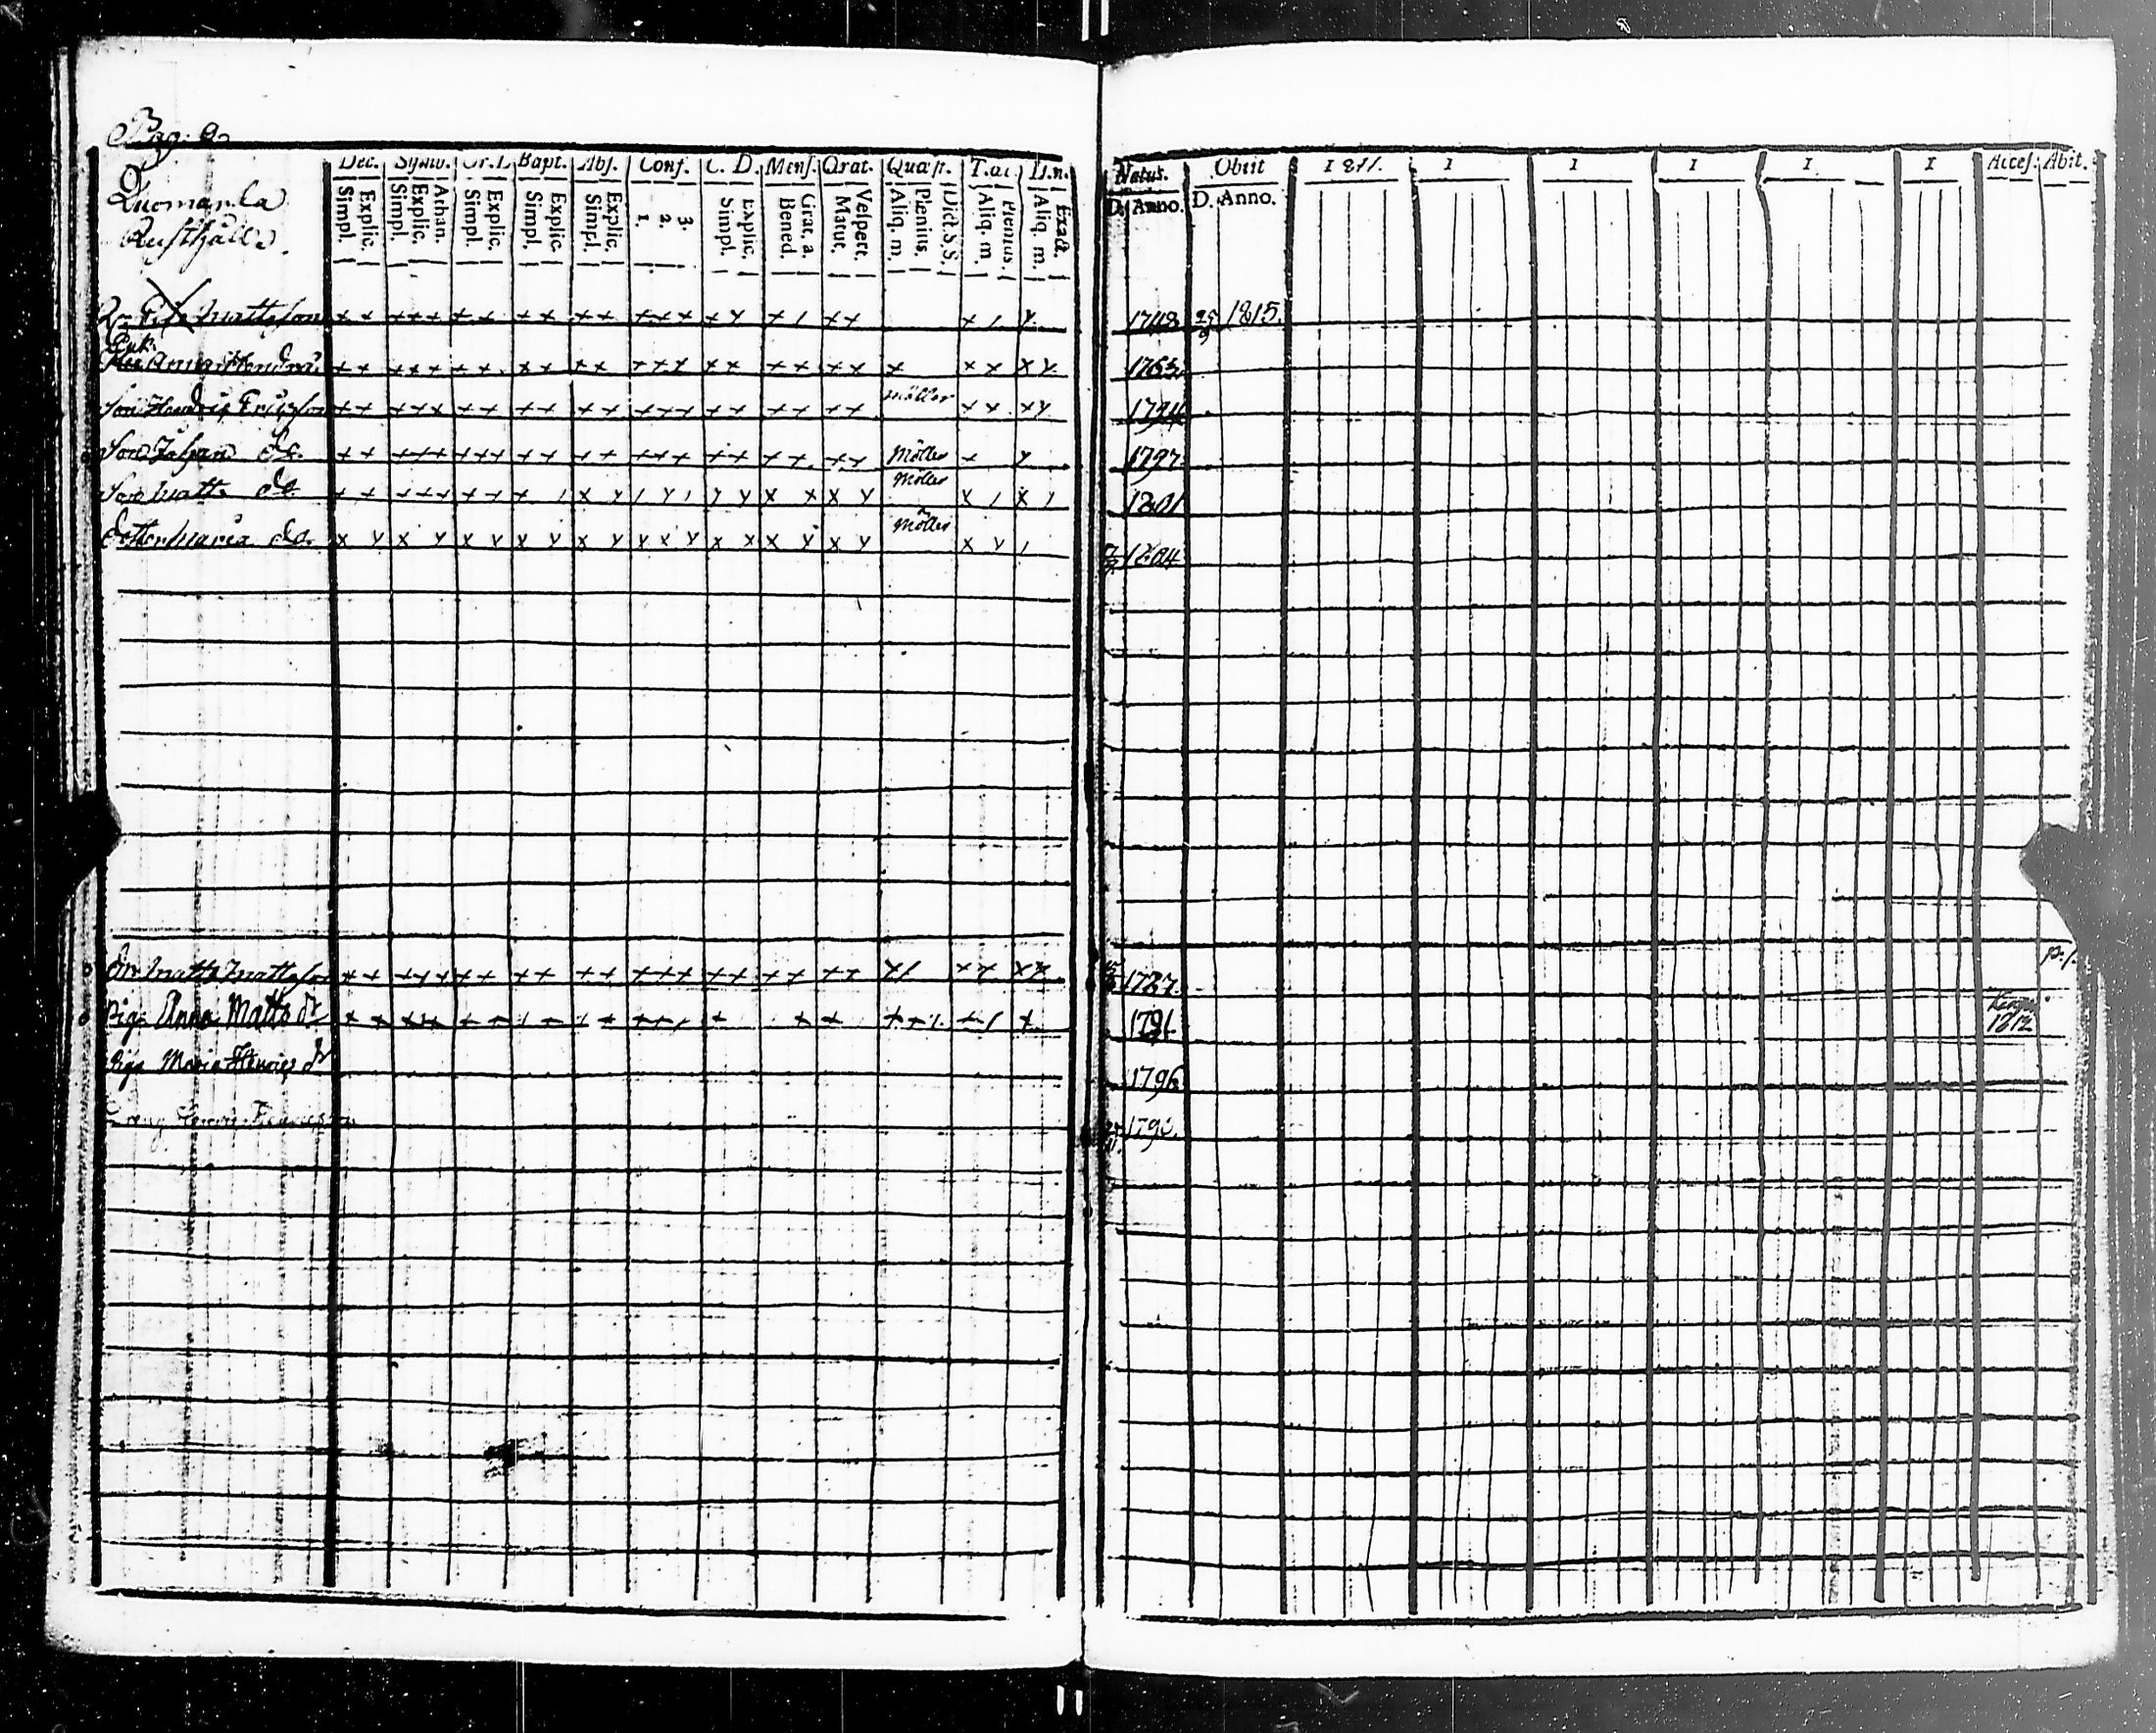 Pag: 2
Dec. Symb. Or. D Bapt. Abs. Conf. C. D. Mens. Orat. Quæst. T. œc. L. n.
Simpl. Explic. Simpl. Explic. Athan. Simpl. Explic. Simpl. Explic. Simpl. Explic. 1. 2. 3. Simpl. Explic. Bened. Grat. a. Matut. Vespert. Aliq. m. Plenius. Dict. S. S. Aliq. m Plenius. Aliq. m. Exact.
Natus. Obiit 1811. 1 1 1 1 1 Acces. Abit.
D. Anno. D. Anno.
Rusthåll
Mattsson 1748 25/9 1815.
Enk.
Anna Hendrs. 1763
Son Hendric Ericsson möller 1794
Son Johan do. Möller 1797
Son Matts do. Möller 1801
Dotter Maria do. Möller 1804
Dr Matts Mattsson 1787 p. 1.
Piga Anna Matts dr 1791 1812
Piga Maria Henrics dr 1796
Dreng Henric 1790.